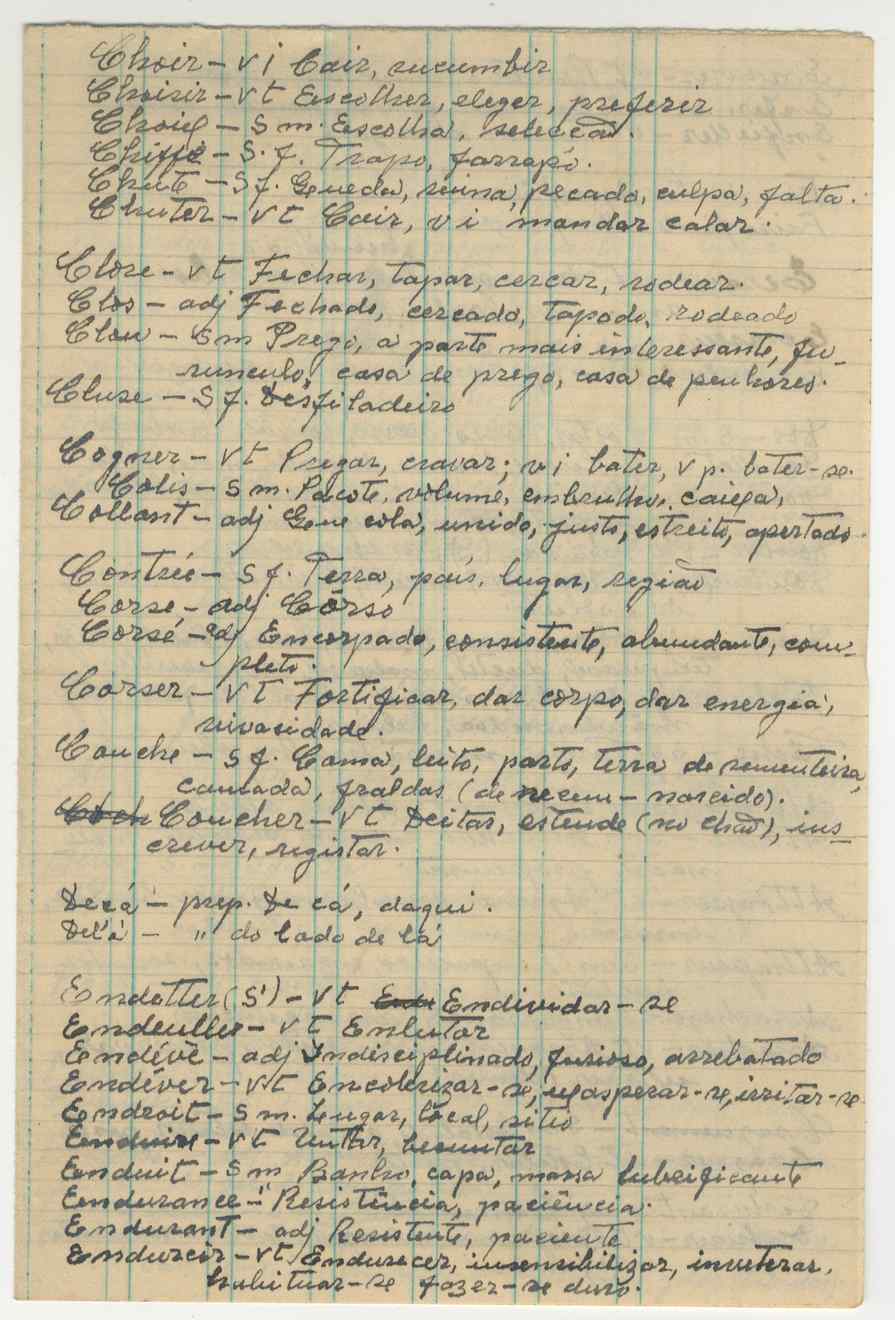 Choir - v i Cair, sucumbir
Choisir - v t Escolher, eleger, preferir
Choix - s m. Escolha, selecção.
Chiffe - s. f. Trapo, farrapo.
Chute - s f. Queda, ruina, pecado, culpa, falta.
Chuter - v t Cair, v i mandar calar.
Clore - v t Fechar, tapar, cercar, rodear.
Clos - adj Fechado, cercado, tapado, rodeado
Clou - s m Prego, a parte mais interessante, fu-
runculo, casa de prego, casa de penhores.
Cluse - s f. Desfiladeiro
Cogner - v t Pregar, cravar; v i bater, v p. bater-se.
Colis - s m. Pacote, volume, embrulho, caixa,
Collant - adj Que cola, unido, justo, estreito, apertado.
Contrée - s f. Terra, país, lugar, região
Corse - adj Côrso
Corsé - adj Encorpado, consistente, abundante, com-
pleto.
Corser - v t Fortificar, dar corpo, dar energia,
vivasidade.
Couche - s f. Cama, leito, parto, terra de sementeira,
camada, fraldas (de recem-nascido).
Coucher - v t Deitar, estende (no chão), ins-
crever, registar.
Decá - prep. De cá, daqui.
Delá - " do lado de lá
Endetter (s') - v t Endividar-se
Endeuller - v t Enlutar
Endévé - adj Indisciplinado, furioso, arrebatado
Endéver - v t Encolerizar-se, exasperar-se, irritar-se
Endroit - s m. Lugar, local, sitio
Enduire - v t Untar, besuntar
Enduit - s m Banho, capa, massa lubrificante
Endurance - " Resistência, paciência.
Endurant - adj Resistente, paciente
Endurcir - v t Endurecer, insensibilizar, inveterar,
habituar-se fazer-se duro.